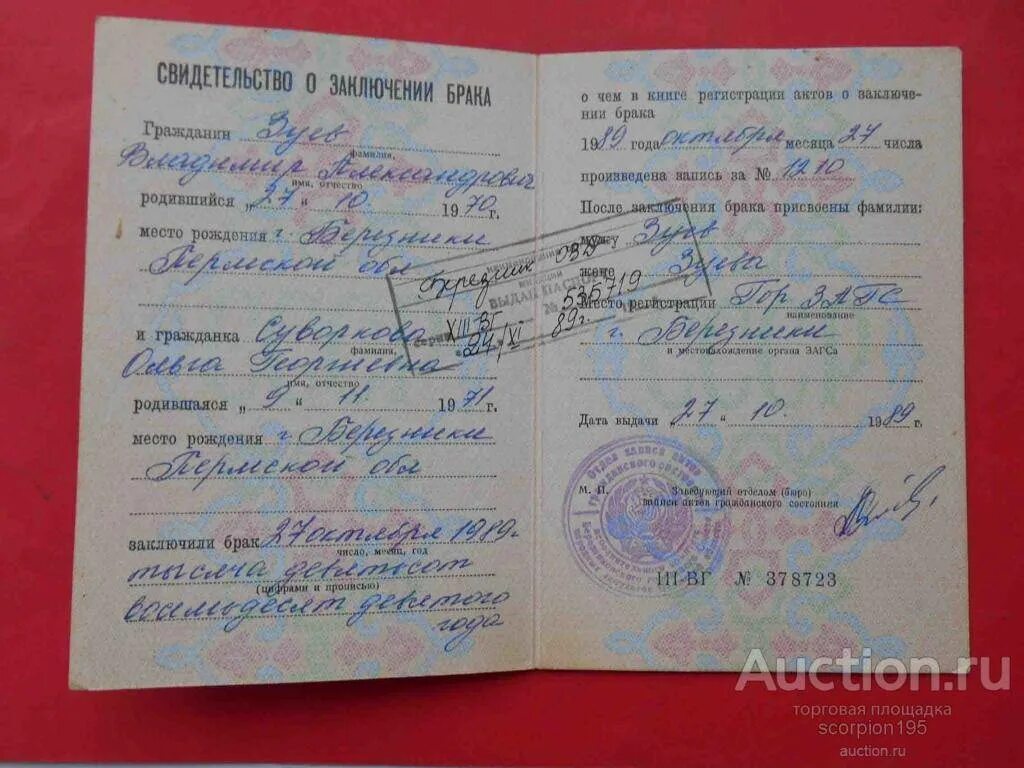 СВИДЕТЕЛЬСТВО О ЗАКЛЮЧЕНИИ БРАКА
Гражданин Зуев
фамилия,
Владимир Александрович
имя, отчество
родившийся „27“ 10. 1970 г.
место рождения г. Березники
Пермской обл
и гражданка Суворкова
фамилия,
Ольга Георгиевна
имя, отчество
родившаяся „9“ 11. 1971 г.
место рождения г. Березники
Пермской обл
заключили брак 27 октября 1989г.
число, месяц, год
тысяча девятьсот
(цифрами и прописью)
восемьдесят девятого
года
о чем в книге регистрации актов о заключе-
нии брака
1989 года октября месяца 27 числа
произведена запись за № 1210
После заключения брака присвоены фамилии:
мужу Зуев
жене Зуева
Место регистрации Гор ЗАГС
наименование
г. Березники
и местонахождение органа ЗАГСа
Дата выдачи „27“ 10. 1989 г.
М. П. Заведующий отделом (бюро)
записи актов гражданского состояния
III-ВГ № 378723
ВЫДАН ПАСПОРТ
XIII ВГ № 535719
„24“ XI 89г.
Auction.ru
торговая площадка
scorpion195
auction.ru